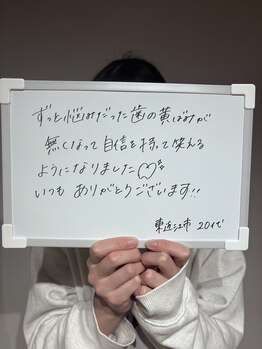 ずっと悩みだった歯の黄ばみが
無くなって自信を持って笑える
ようになりました
いつもありがとうございます!!
東近江市 20代